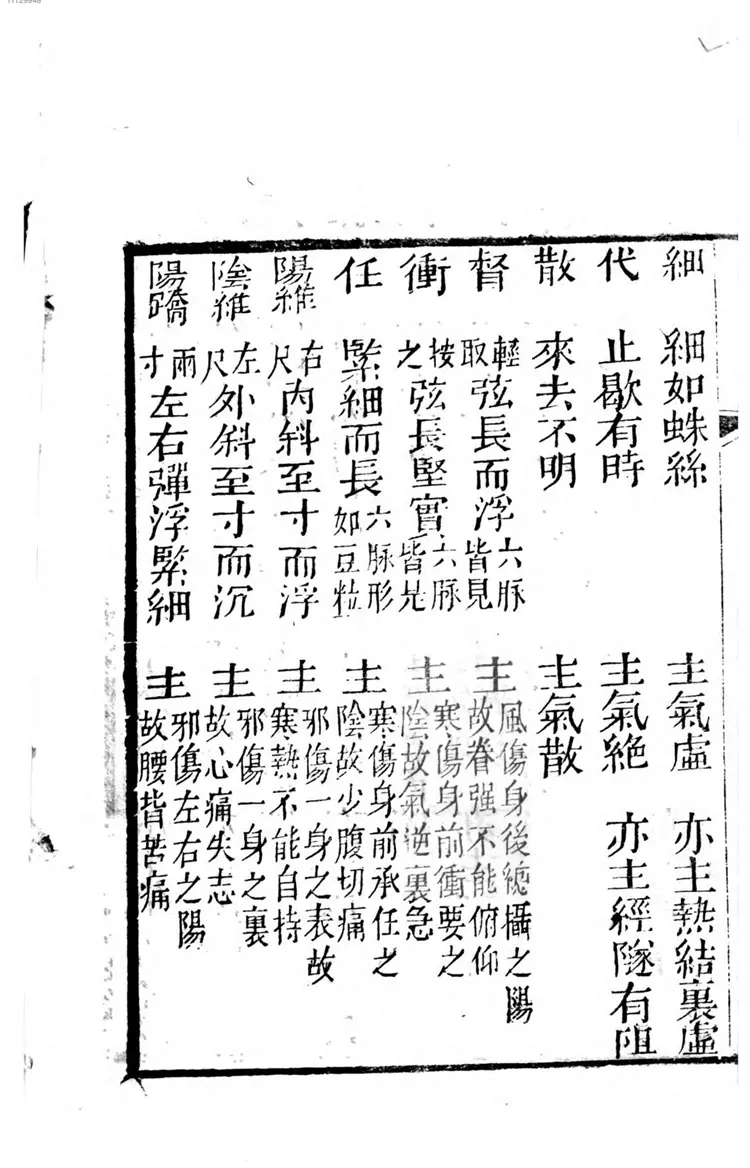 細　細如蛛絲　主氣虛　亦主熱結裏虛
代　止歇有時　主氣絕　亦主經隧有阻
散　來去不明　主氣散
督　輕取弦長而浮六脉皆見　主風傷身後總攝之陽故脊强不能俯仰
衝　按之弦長堅實六脉皆是　主寒傷身前衝要之陰故氣逆裏急
任　緊細而長六脉形如豆粒　主寒傷身前承任之陰故少腹切痛
陽維　右尺內斜至寸而浮　主邪傷一身之表故寒熱不能自持
陰維　左尺外斜至寸而沉　主邪傷一身之裏故心痛失志
陽蹻　兩寸左右彈浮緊細　主邪傷左右之陽故腰背苦痛
11729948